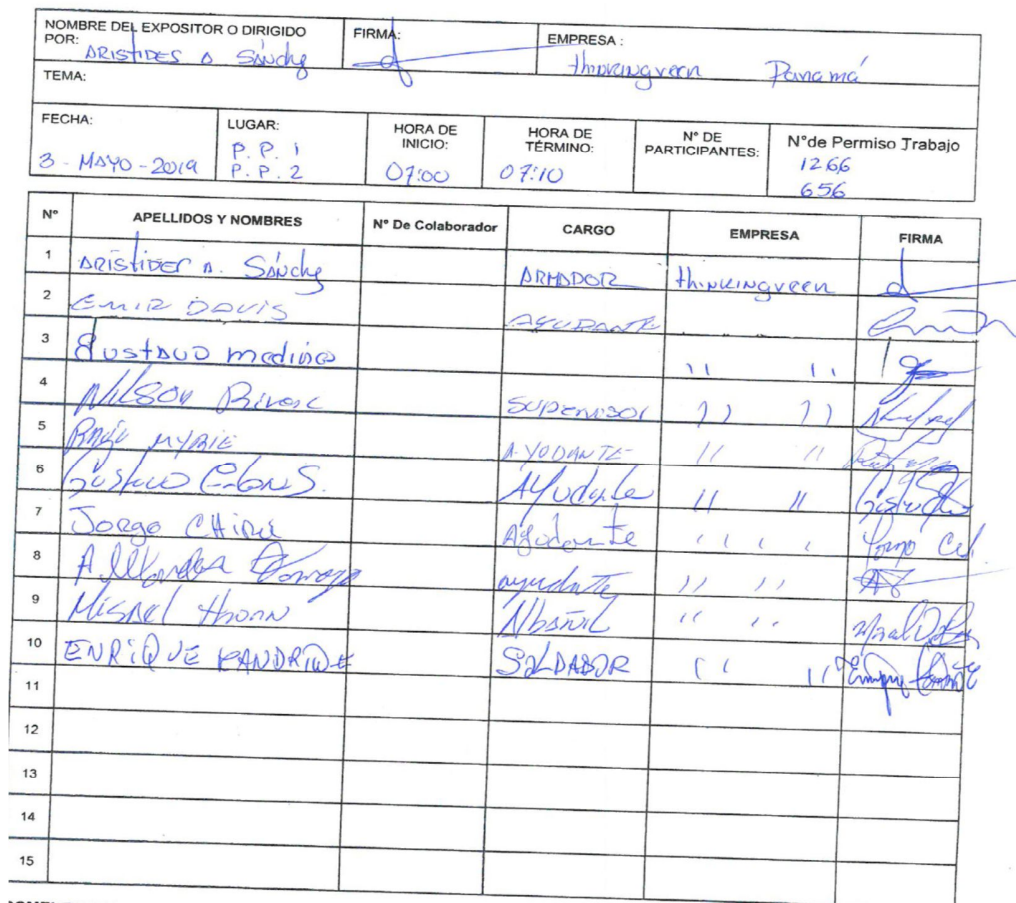 NOMBRE DEL EXPOSITOR O DIRIGIDO POR: ARISTIDES A Sánchz FIRMA: EMPRESA : thinkingreen Panamá
TEMA:
FECHA: LUGAR: HORA DE INICIO: HORA DE TÉRMINO: N° DE PARTICIPANTES: N°de Permiso Trabajo
3 - MAYO - 2019 P. P. 1 07:00 07:10 1266
P. P. 2 656
N° APELLIDOS Y NOMBRES N° De Colaborador CARGO EMPRESA FIRMA
1 ARISTIDES A. Sánchz ARMADOR thinkingreen
2 EMIR DAVIS AYUDANTE
3 Gustavo medina ,, ,,
4 Wilson SUPERVISOR ,, ,,
5 MYRIE AYODANTE // //
6 Gustavo S. AYudante // //
7 Jorge Ayudante , , , ,
8 ayudante ,, ,,
9 Misael Albañil ,, ,,
10 ENRiQUE SOLDADOR ,, ,,
11
12
13
14
15